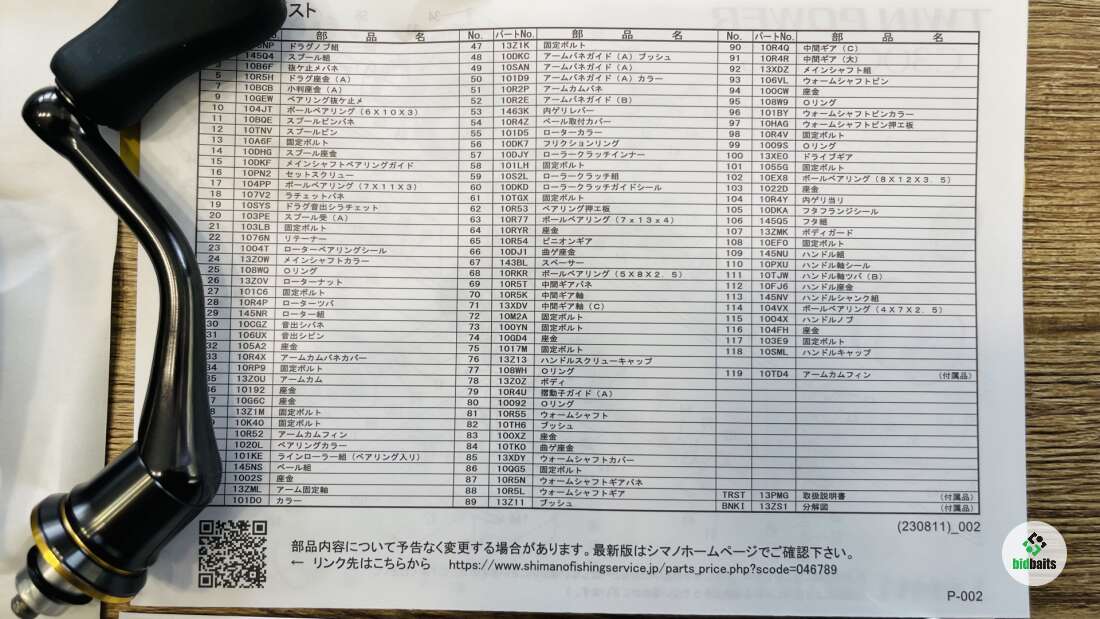 スト
部 品 名 No. パートNo. 部 品 名 No. パートNo. 部 品 名
ドラグノブ組 47 13Z1K 固定ボルト 90 10R4Q 中間ギア (C)
145Q4 スプール組 48 10DKC アームバネガイド (A) ブッシュ 91 10R4R 中間ギア (大)
10B6F 抜ケ止メバネ 49 10SAN アームバネガイド (A) 92 13XDZ メインシャフト組
5 10R5H ドラグ座金 (A) 50 101D9 アームバネガイド (A) カラー 93 106VL ウォームシャフトピン
7 10BCB 小判座金 (A) 51 10R2P アームカムバネ 94 100CW 座金
9 10GEW ベアリング抜ケ止メ 52 10R2E アームバネガイド (B) 95 108W9 Oリング
10 104JT ボールベアリング (6X10X3) 53 1463K 内ゲリレバー 96 101BY ウォームシャフトピンカラー
11 10BQE スプールピンバネ 54 10R4Z ベール取付カバー 97 10HAG ウォームシャフトピン押エ板
12 10TNV スプールピン 55 101D5 ローターカラー 98 10R4V 固定ボルト
13 10A6F 固定ボルト 56 10DK7 フリクションリング 99 1009S Oリング
14 10DHG スプール座金 57 10DJY ローラークラッチインナー 100 13XE0 ドライブギア
15 10DKF メインシャフトベアリングガイド 58 101LH 固定ボルト 101 1055G 固定ボルト
16 10PN2 セットスクリュー 59 10S2L ローラークラッチ組 102 10EX8 ボールベアリング (8X12X3.5)
17 104PP ボールベアリング (7X11X3) 60 10DKD ローラークラッチガイドシール 103 1022D 座金
18 107V2 ラチェットバネ 61 10TGX 固定ボルト 104 10R4Y 内ゲリ当リ
19 10SYS ドラグ音出シラチェット 62 10R53 ベアリング押エ板 105 10DKA フタフランジシール
20 103PE スプール受 (A) 63 10R77 ボールベアリング (7x13x4) 106 145Q5 フタ組
21 103LB 固定ボルト 64 10RYR 座金 107 13ZMK ボディガード
22 1076N リテーナー 65 10R54 ピニオンギア 108 10EF0 固定ボルト
23 1004T ローターベアリングシール 66 10DJ1 曲ゲ座金 109 145NU ハンドル組
24 13Z0W メインシャフトカラー 67 143BL スペーサー 110 10PXU ハンドル軸シール
25 108WQ Oリング 68 10RKR ボールベアリング (5X8X2.5) 111 10TJW ハンドル軸ツバ (B)
26 13Z0V ローターナット 69 10R5T 中間ギアバネ 112 10FJ6 ハンドル座金
27 101C6 固定ボルト 70 10R5K 中間ギア軸 113 145NV ハンドルシャンク組
28 10R4P ローターツバ 71 13XDV 中間ギア軸 (C) 114 104VX ボールベアリング (4X7X2.5)
29 145NR ローター組 72 10M2A 固定ボルト 115 1004X ハンドルノブ
30 10CGZ 音出シバネ 73 100YN 固定ボルト 116 104FH 座金
31 106UX 音出シピン 74 10GD4 座金 117 103E9 固定ボルト
32 105A2 座金 75 1017M 固定ボルト 118 10SML ハンドルキャップ
33 10R4X アームカムバネカバー 76 13Z13 ハンドルスクリューキャップ
34 10RP9 固定ボルト 77 108WH Oリング 119 10TD4 アームカムフィン (付属品)
35 13Z0U アームカム 78 13Z0Z ボディ
36 10192 座金 79 10R4U 摺動子ガイド (A)
7 10G6C 座金 80 10092 Oリング
8 13Z1M 固定ボルト 81 10R55 ウォームシャフト
9 10K40 固定ボルト 82 10TH6 ブッシュ
10R52 アームカムフィン 83 100XZ 座金
1020L ベアリングカラー 84 10TK0 曲ゲ座金
101KE ラインローラー組 (ベアリング入リ) 85 13XDY ウォームシャフトカバー
145NS ベール組 86 10QG5 固定ボルト
1002S 座金 87 10R5N ウォームシャフトギアバネ
13ZML アーム固定軸 88 10R5L ウォームシャフトギア TRST 13PMG 取扱説明書 (付属品)
101D0 カラー 89 13Z11 ブッシュ BNKI 13ZS1 分解図 (付属品)
(230811)_002
部品内容について予告なく変更する場合があります。最新版はシマノホームページでご確認下さい。
← リンク先はこちらから https://www.shimanofishingservice.jp/parts_price.php?scode=046789
P-002
bidbaits